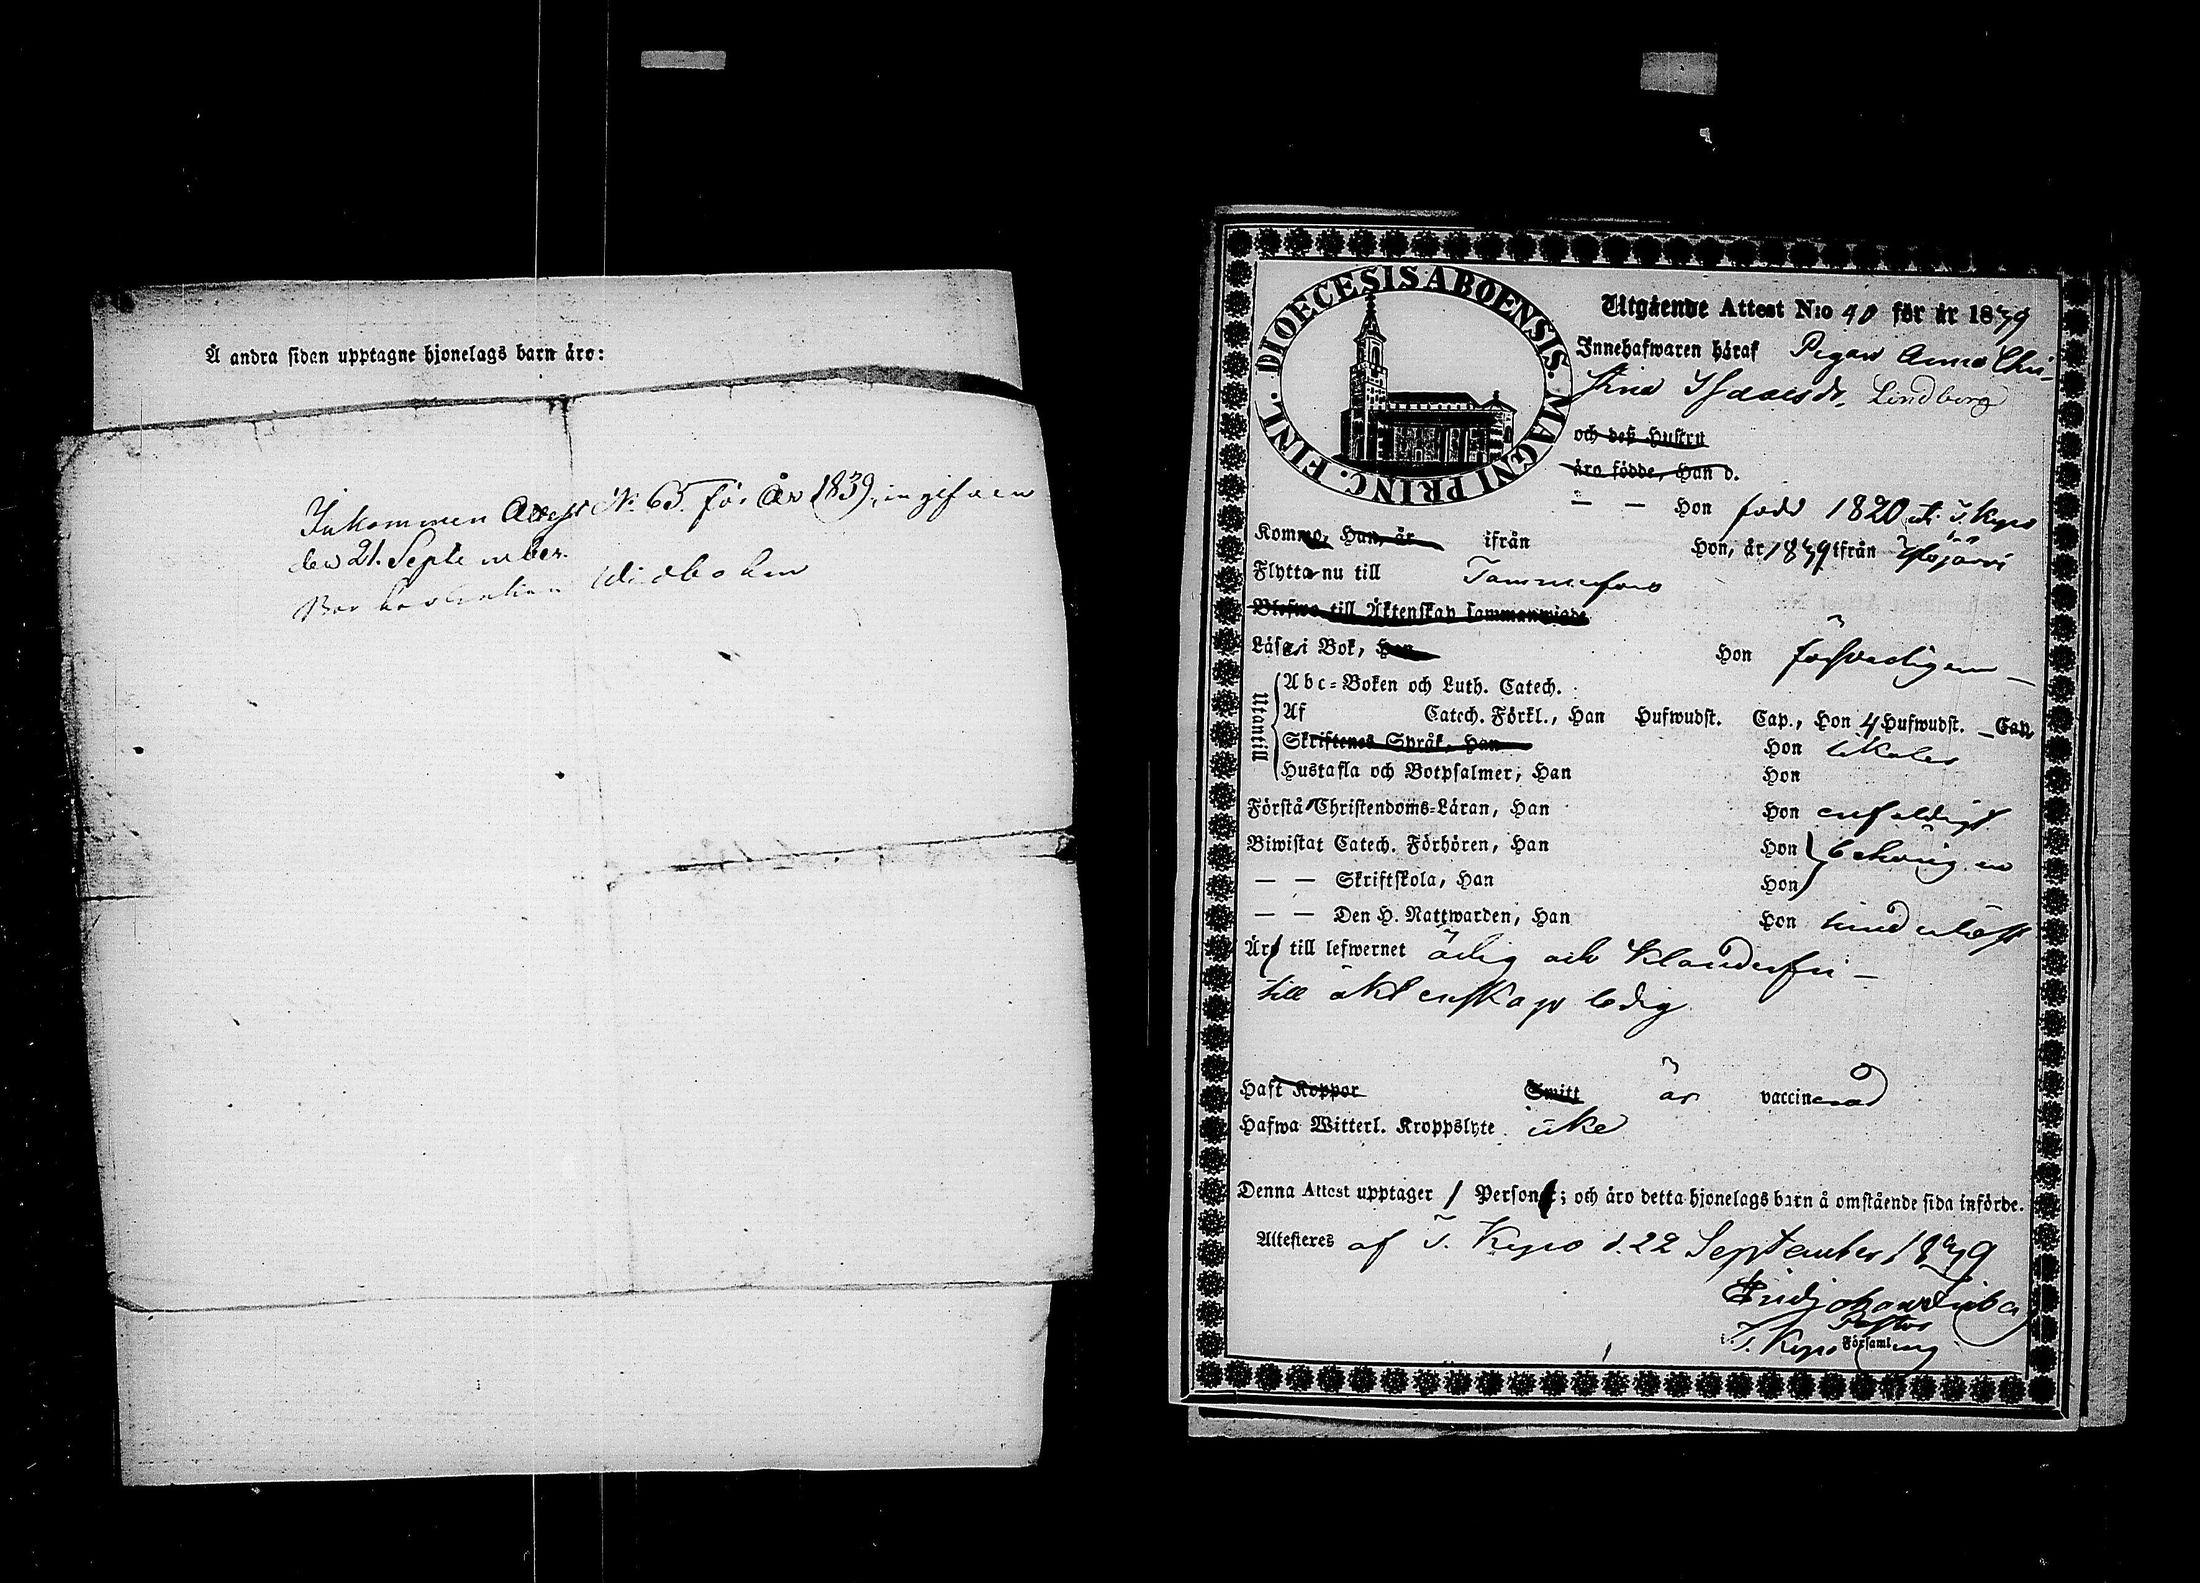 Å andra sidan upptagne hjonelags barn äro:
Inkommen Attest N. 65. för År 1839, ingifven
den 21. September.
DIOECESIS ABOENSIS. MAGNI PRINC. FINL.
Utgående Attest N:o 40 för år 1839
Innehafwaren häraf Pigan Anna Chri-
stina Isaacsdr. Lindberg
och deß Hustru
äro födde, Han d.
— — Hon född 1820 i T. Kyro
Komme, Han, år ifrån Hon, år 1839 ifrån Ylöjärvi
Flytta nu till Tammerfors
Blefwo till Äktenskap sammanwigde
Läsa i Bok, Han Hon försvarligen —
Utantill
Abc-Boken och Luth. Catech.
Af Catech. Förkl., Han Hufwudst. Cap., Hon 4 Hufwudst. — Cap.
Skriftenes Språk, Han Hon
Hustafla och Botpsalmer, Han Hon
Förstå Christendoms-Läran, Han Hon enfaldigt
Biwistat Catech. Förhören, Han Hon behörigen
— — Skriftskola, Han Hon
— — Den H. Nattwarden, Han Hon
Äro till lefwernet ärlig och klanderfri —
till äktenskap ledig
Haft Koppor Smitt är vaccinerad
Hafwa Witterl. Kroppslyte icke
Denna Attest upptager 1 Person; och äro detta hjonelags barn å omstående sida införde.
Attesteras af T. Kyro d. 22 September 1839
Pastor
i T. Kyro Församling